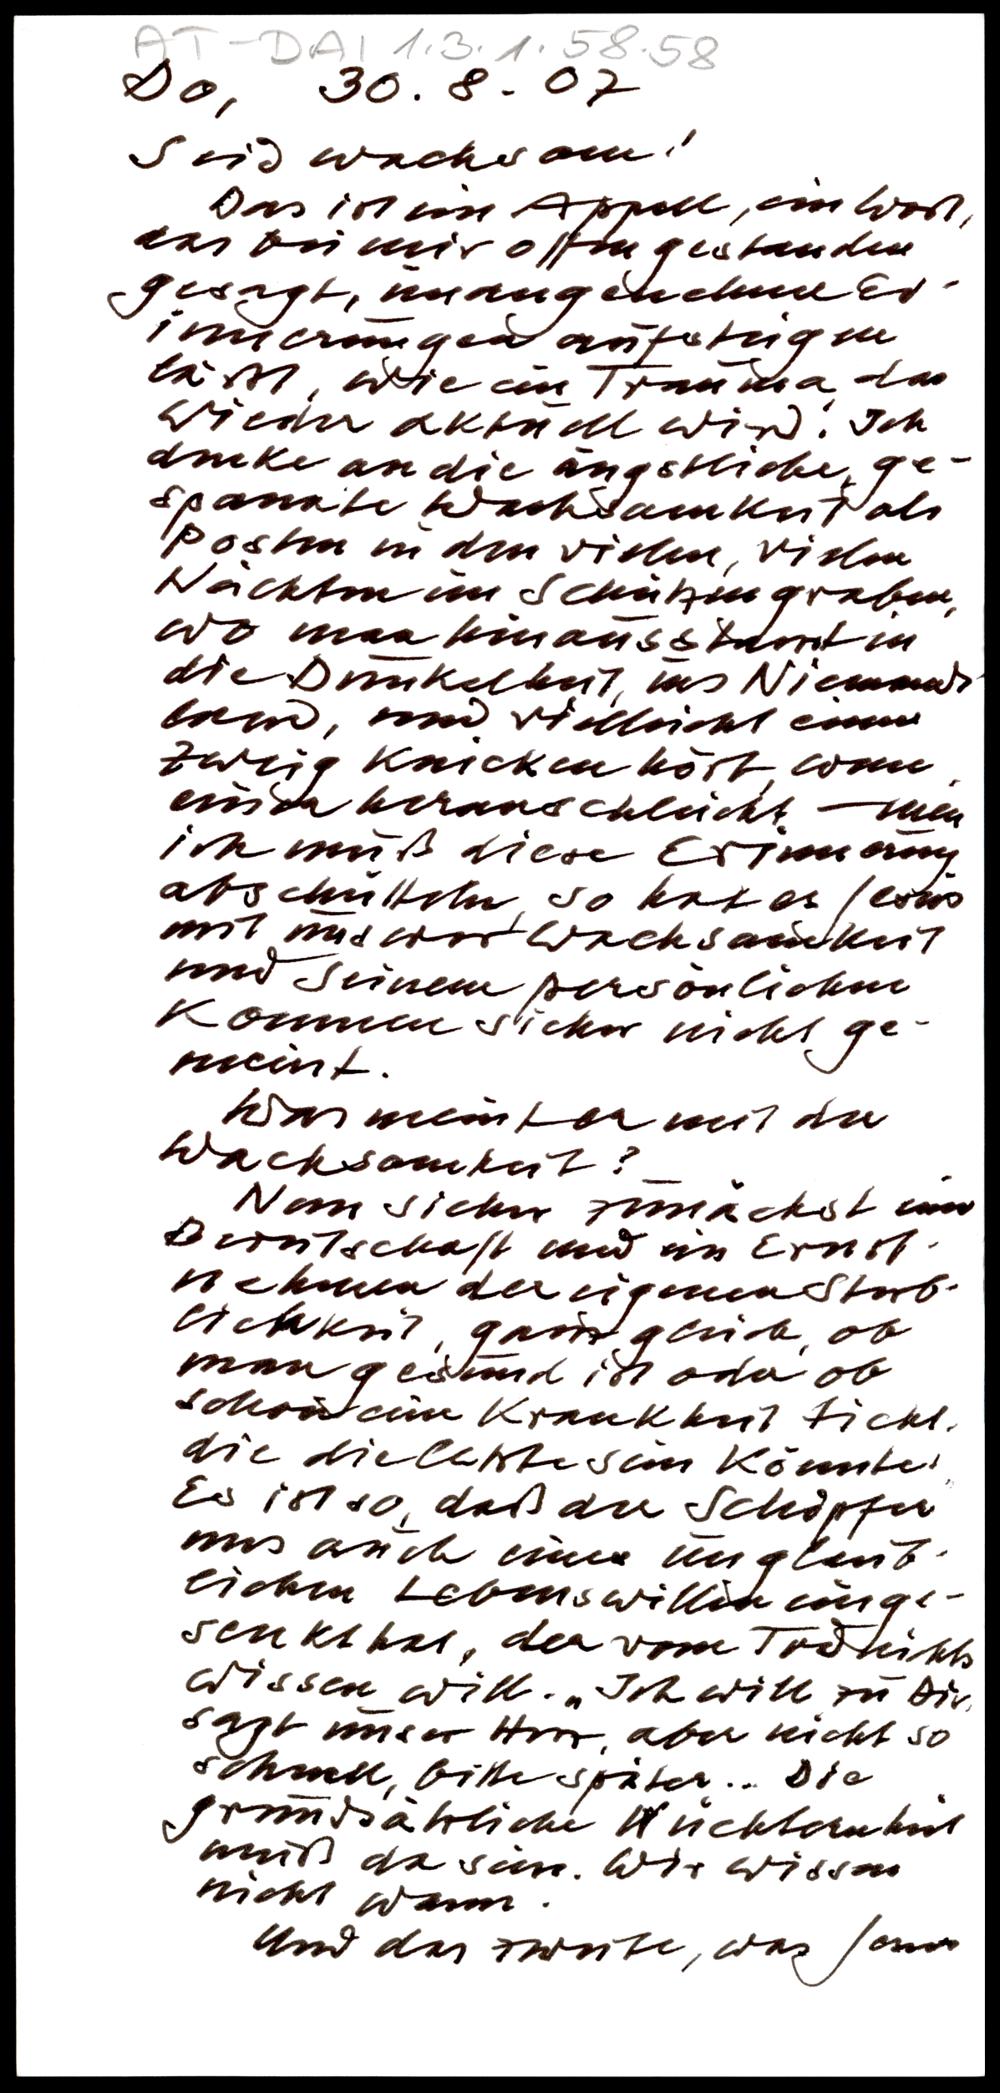 AT-DAI 1.3.1.58.58
Do, 30. 8. 07
Seid wachsam!
Das ist ein Appell, ein Wort,
das bei mir offen gestanden
gesagt, unangenehme Er-
innerungen aufsteigen
läßt, wie ein Trauma, das
wieder aktuell wird. Ich
denke an die ängstliche, ge-
spannte Wachsamkeit als
Posten in den vielen, vielen
Nächten im Schützengraben,
wo man hinausstarrt in
die Dunkelheit, ins Niemands
land, und vielleicht einen
Zweig knicken hört, wenn
einer heranschleicht –
ich muß diese Erinnerung
abschütteln, so hat es Jesus
mit Wachsamkeit
und seinem persönlichen
Kommen sicher nicht ge-
meint.
Was meint er mit der
Wachsamkeit?
Nun sicher zunächst eine
Bereitschaft und ein Ernst-
nehmen der eigenen Sterb-
lichkeit, ganz gleich, ob
man gesund ist oder ob
schon eine Krankheit tickt,
die die letzte sein könnte.
Es ist so, daß der Schöpfer
uns auch einen unglaub-
lichen Lebenswillen einge-
senkt hat, der vom Tod nichts
wissen will. „Ich will zu Dir,
sagt unser Herz, aber nicht so
schnell, bitte später.. Die
grundsätzliche Nüchternheit
muß da sein. Wir wissen
nicht wann.
Und das zweite, was Jesus